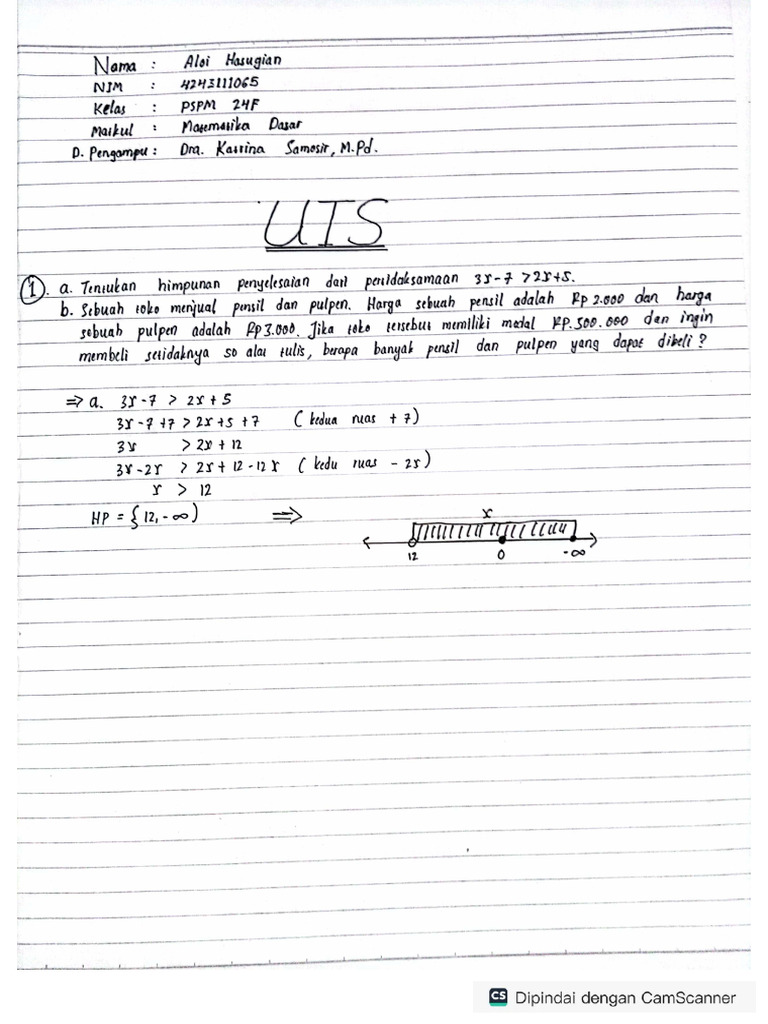 Nama : Aloi Hasugian
NIM : 4243111065
Kelas : PSPM 24F
Matkul : Matematika Dasar
D. Pengampu : Dra. Katrina Samosir, M.Pd.
UTS
1. a. Tentukan himpunan penyelesaian dari pertidaksamaan 3x-7 > 2x+5.
b. Sebuah toko menjual pensil dan pulpen. Harga sebuah pensil adalah Rp 2.000 dan harga
sebuah pulpen adalah Rp 3.000. Jika toko tersebut memiliki modal RP. 500.000 dan ingin
membeli setidaknya 50 alat tulis, berapa banyak pensil dan pulpen yang dapat dibeli?
⇒ a. 3x - 7 > 2x + 5
3x - 7 + 7 > 2x + 5 + 7 (kedua ruas + 7)
3x > 2x + 12
3x - 2x > 2x + 12 - 12x (kedu ruas - 2x)
x > 12
HP = {12, -∞) ⇒
x
12 0 -∞
CS Dipindai dengan CamScanner